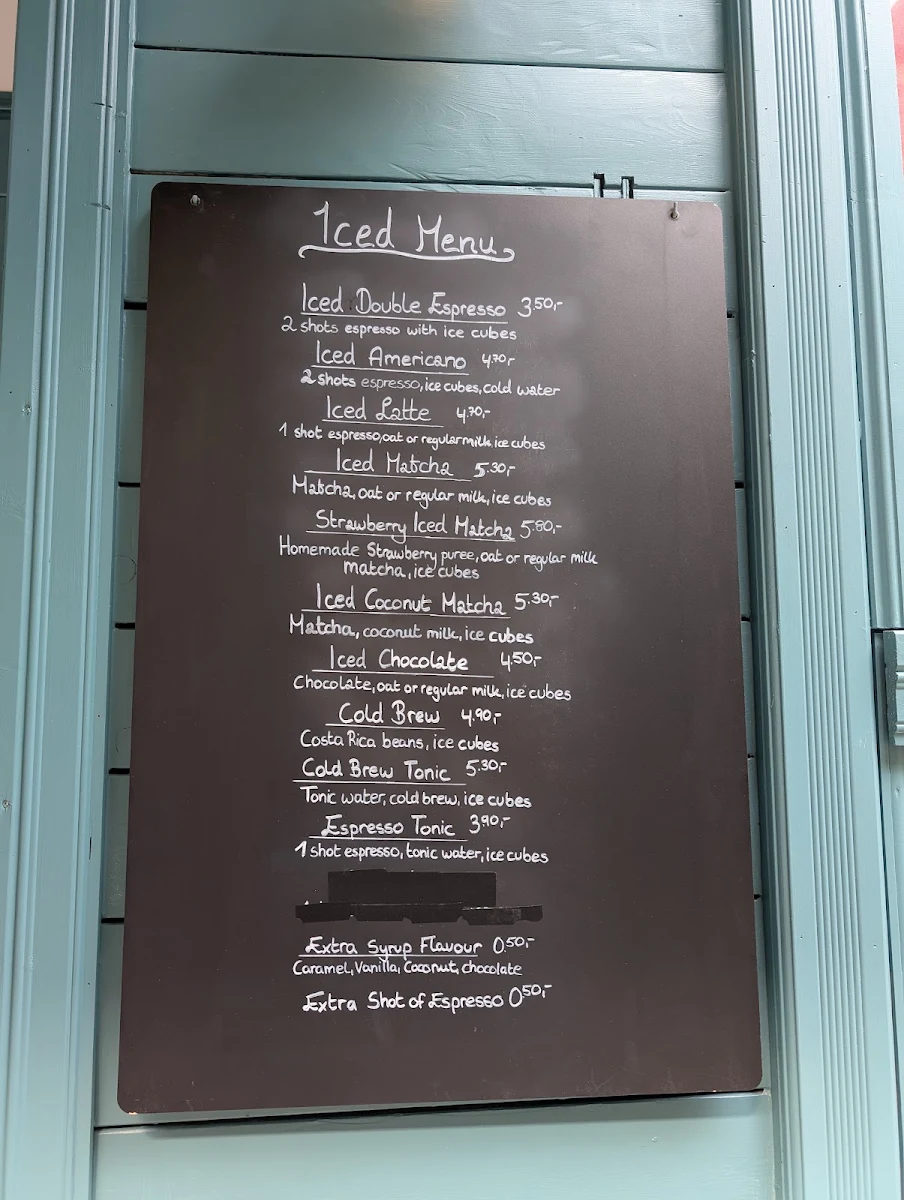 Iced Menu
Iced Double Espresso 3.50,-
2 shots espresso with ice cubes
Iced Americano 4.70,-
2 shots espresso, ice cubes, cold water
Iced Latte 4.70,-
1 shot espresso, oat or regular milk, ice cubes
Iced Matcha 5.30,-
Matcha, oat or regular milk, ice cubes
Strawberry Iced Matcha 5.80,-
Homemade Strawberry puree, oat or regular milk
matcha, ice cubes
Iced Coconut Matcha 5.30,-
Matcha, coconut milk, ice cubes
Iced Chocolate 4.50,-
Chocolate, oat or regular milk, ice cubes
Cold Brew 4.90,-
Costa Rica beans, ice cubes
Cold Brew Tonic 5.30,-
Tonic water, cold brew, ice cubes
Espresso Tonic 3.90,-
1 shot espresso, tonic water, ice cubes
Extra Syrup Flavour 0.50,-
Caramel, Vanilla, Coconut, chocolate
Extra Shot of Espresso 0.50,-